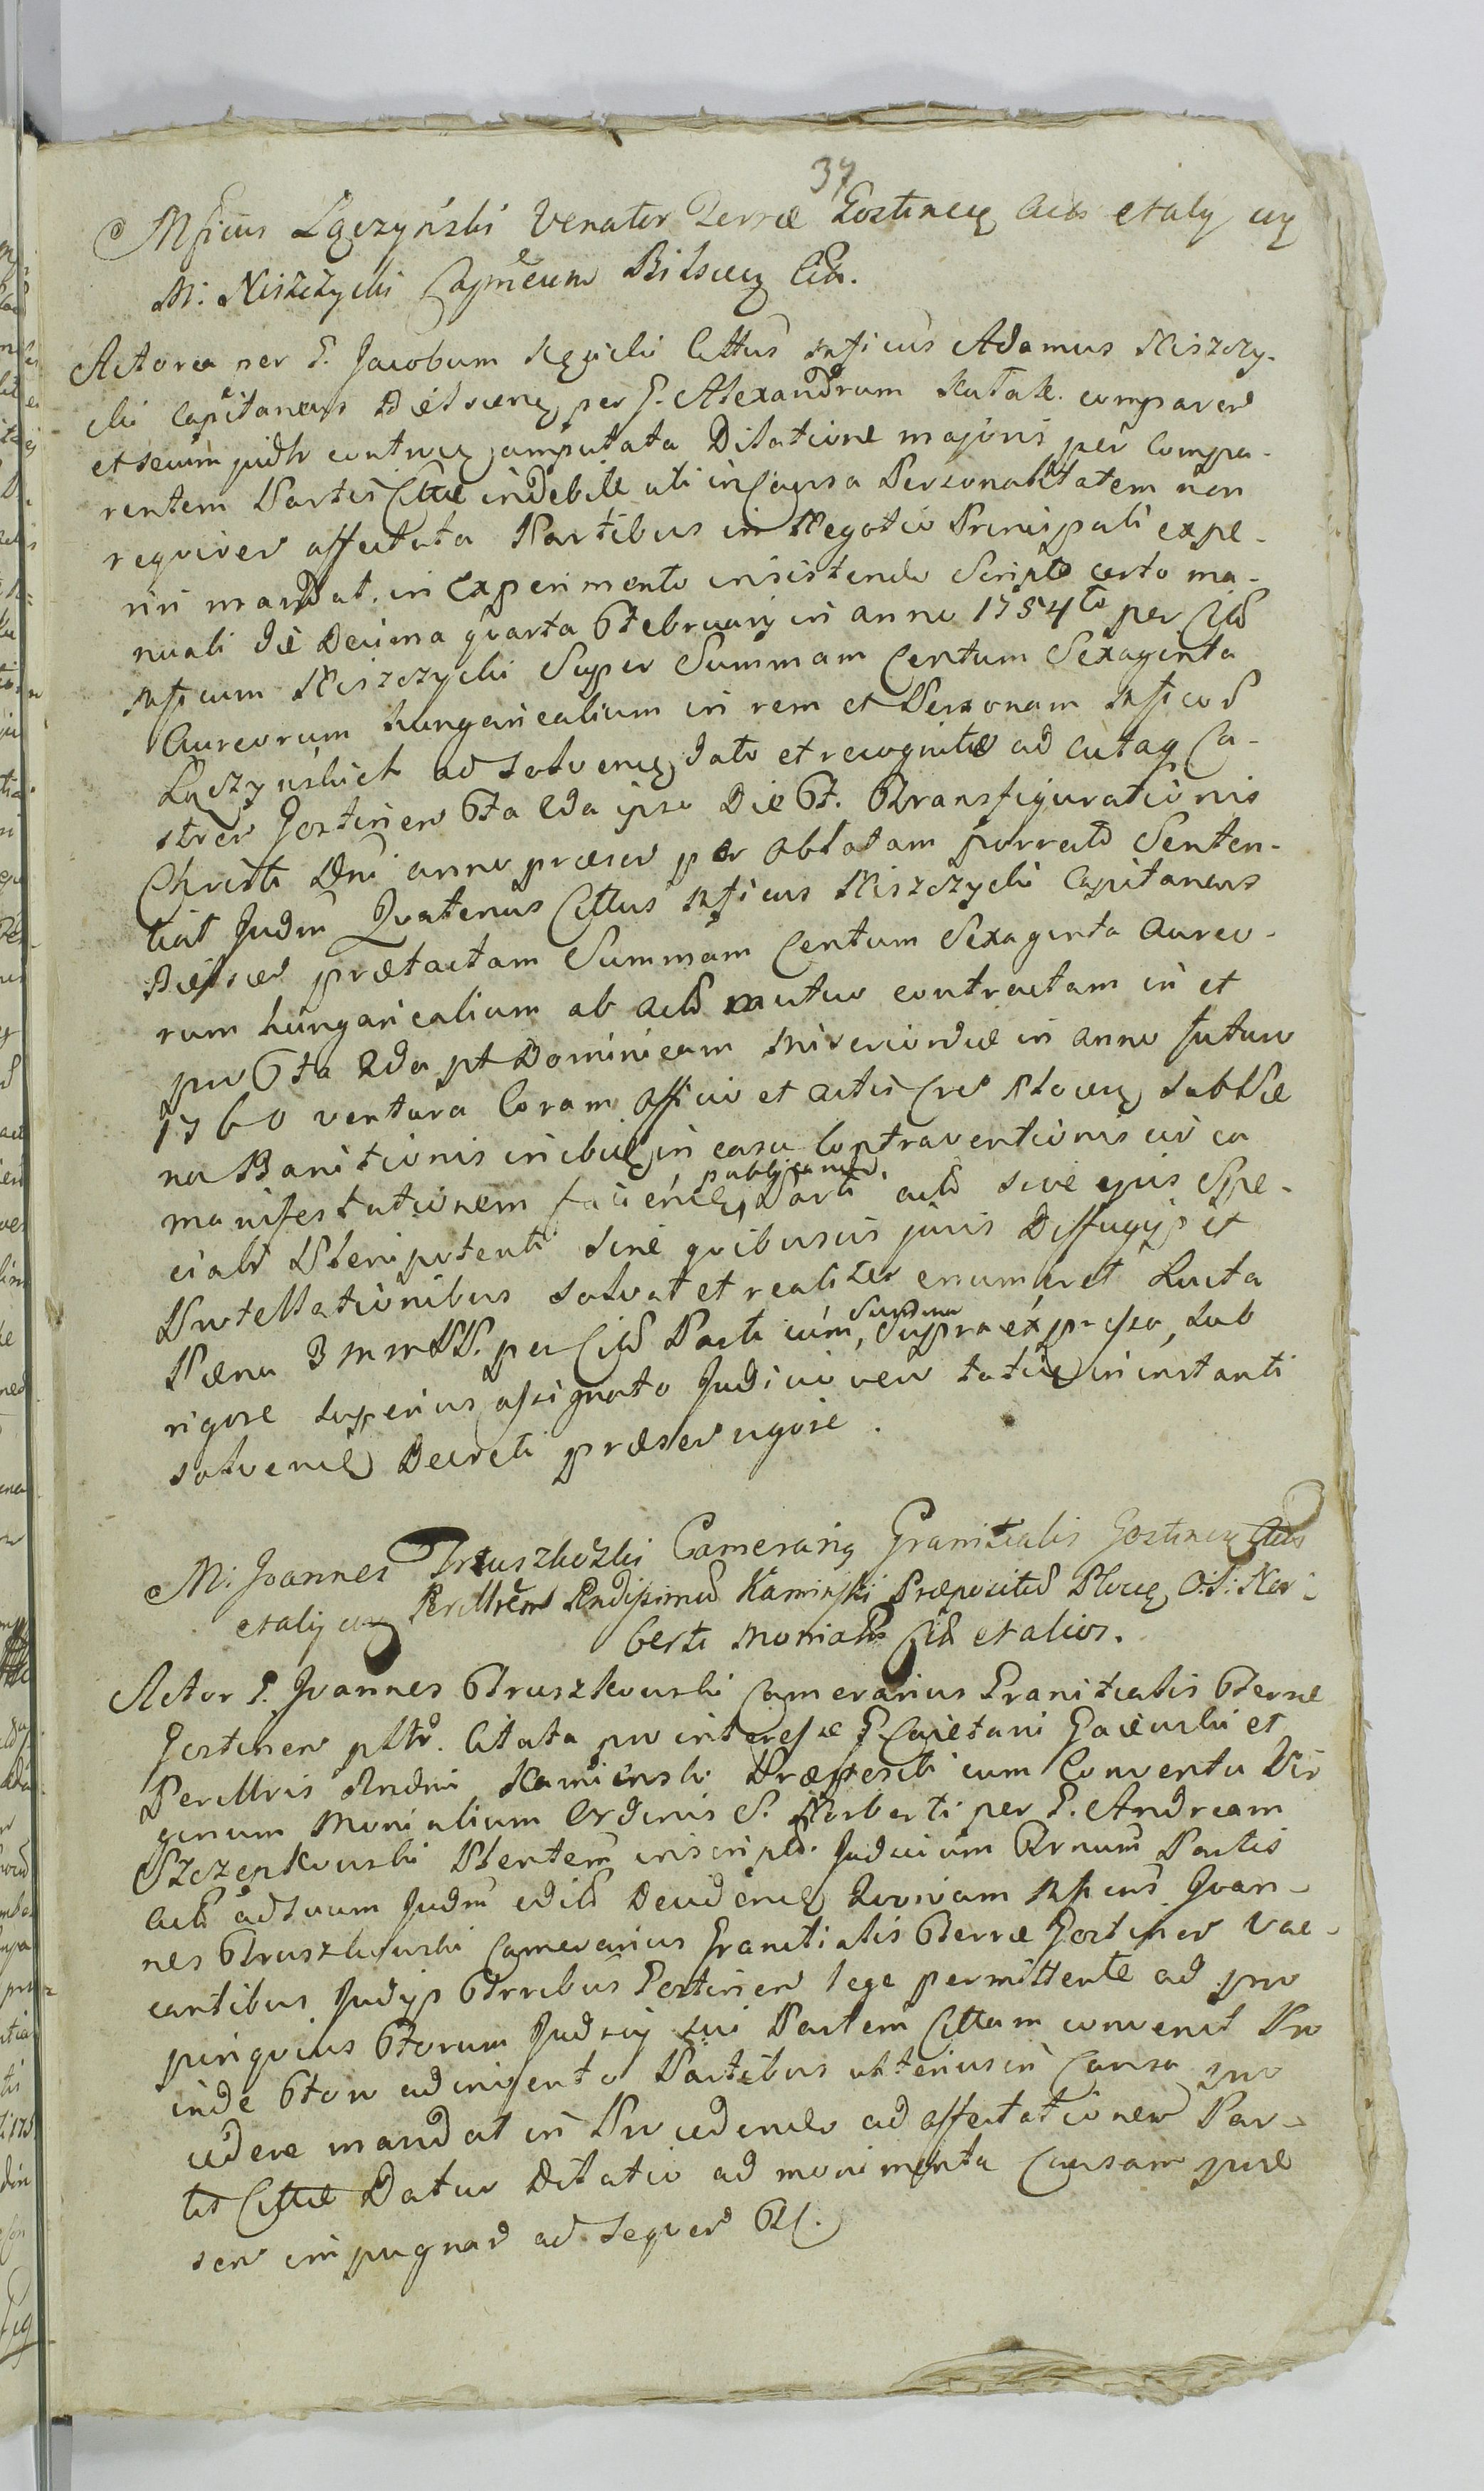 37
Mficus Łączyński Venator Terræ Gostinen Acts et alij cum
M: Niszczycki Capneum Bilscen Cit.
Actorea per G. Jacobum Kęsicki Cittus Mficus Adamus Niszczy-
cki Capitaneus Bielscen per G. Alexandrum Rutak. comparen
et secum judtr contraen amputata Dilatione majoris per Compa-
rentem Partis Cittæ indebite uti in Causa Personalitatem non
requiren affectata Partibus in Negotio Principali expe-
riri mandat. in Experimento insistendo Scripto certo ma-
nuali die Decima quarta Februarij in anno 1754to per Citt
Mficum Niszczycki Super Summam Centum Sexaginta
Aureorum hungaricalium in rem et Personam Mficor
Łączyńskich ad solvend dato et recognito ad acta Ca-
stren Gostinen Fta 2da ipso Die F. Transfiguratiónis
Christi Dni anno præsen per oblatam porrecto Senten-
tiat Judm Quatenus Cittus Mficus Niszczycki Capitaneus
Bielscen prætactam Summam Centum Sexaginta Aureo-
rum hungaricalium ab Acto mutuo contractam in et
pro Fta 2da pt Dominicam Misericordiæ in anno futuro
1760 ventura Coram Officio et Actis Cren Plocen sub Pæ
na Banitionis in ibid in casu Contraventionis cum ea
manifestationem faciend publicand Parti Actæ sive ejus Spe-
ciali Plenipotenti sine quibusvis juris Diffugijs et
Protellationibus solvat et realiter enumeret Lucta
Pæna 3 m mPP. per Citt Parti cum Summa Supra expressa, sub
rigore superius assignato Judicio vero tatia in instanti
solvend Decreti præsen vigore.
M: Joannes Truszkowski Camerarig Granitialis Gostinen Acts
et alij cum Perillrem Rndissimum Kaminski Præpositum Plocen O: S: Nor-
berti Moniales Citt et alios.
Actor G. Joannes Truszkowski Camerarius Granitialis Terræ
Gostinen pltr. Citata pro interesse G Caietani Gaiewski et
Perillris Rndmi Kamienski Præpositi cum Conventu Vir
ginum Monialium Ordinis S. Norberti per G. Andream
Szczepkowski Plentem inscripto. Judicium Trnum Partis
Actæ ad suum Judm edito Decidend Quoniam Mficus Joan-
nes Truszkowski Camerarius Granitialis Terræ Gostinen Vac-
cantibus Judijs Trribus Gostinen lege permittente ad pro
pinquius Forum Judicij sui Partem Cittam convenit Pro
inde Foro adinvento Partibus ulterius in Causa pro
cedere mandat in Procedendo ad affectationem Par-
tis Cittæ Datur Dilatio ad monimenta Causam præ
sen impugnan ad sequen TC.